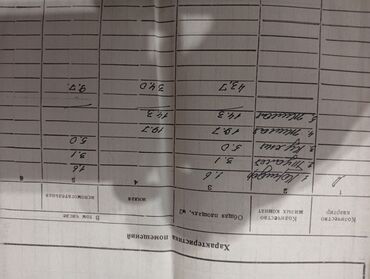 Характеристика помещений
Количество квартир
Количество жилых комнат
Общая площадь, м2
В том числе
жилая
вспомогательная
1 2 3 4 5 6
1. Коридор 1,6 1,6
2. Туалет 3,1 3,1
3. Кухня 5,0 5,0
4. Жилая 19,7 19,7
5. Жилая 14,3 14,3
43,7 34,0 9,7